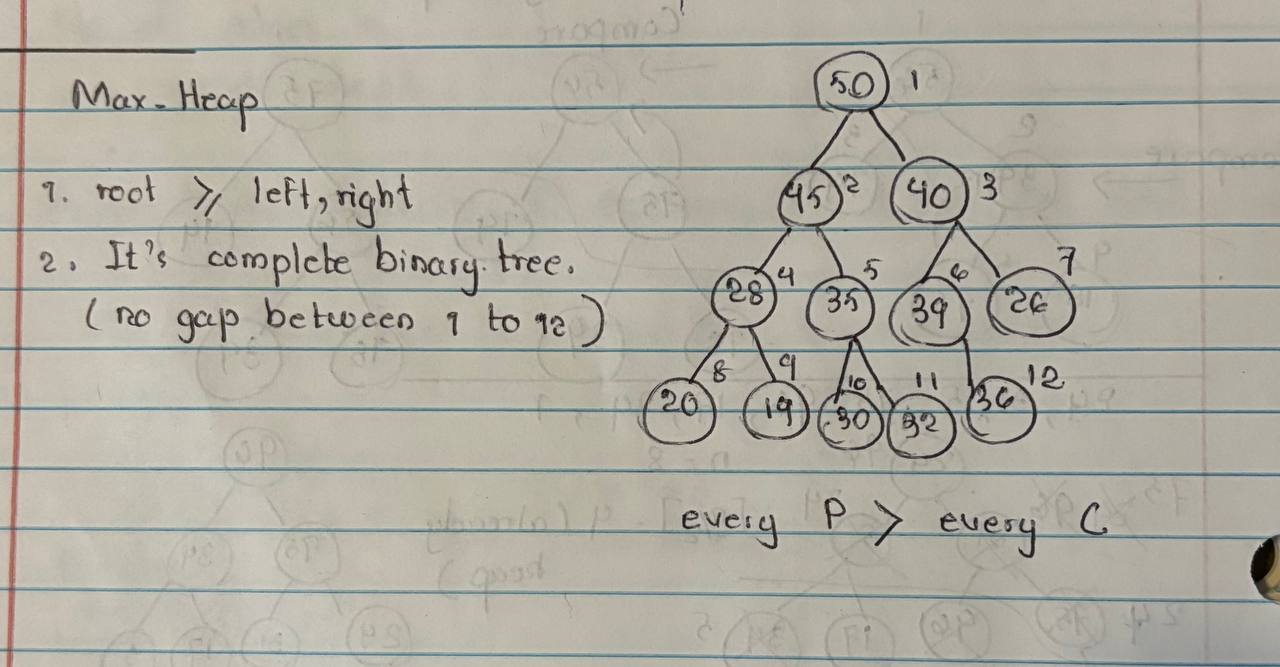 Max-Heap
1. root ≥ left, right
2. It's complete binary tree.
(no gap between 1 to 12)
50 1
45 2 40 3
28 4 35 5 39 6 26 7
20 8 19 9 30 10 32 11 36 12
every P > every C